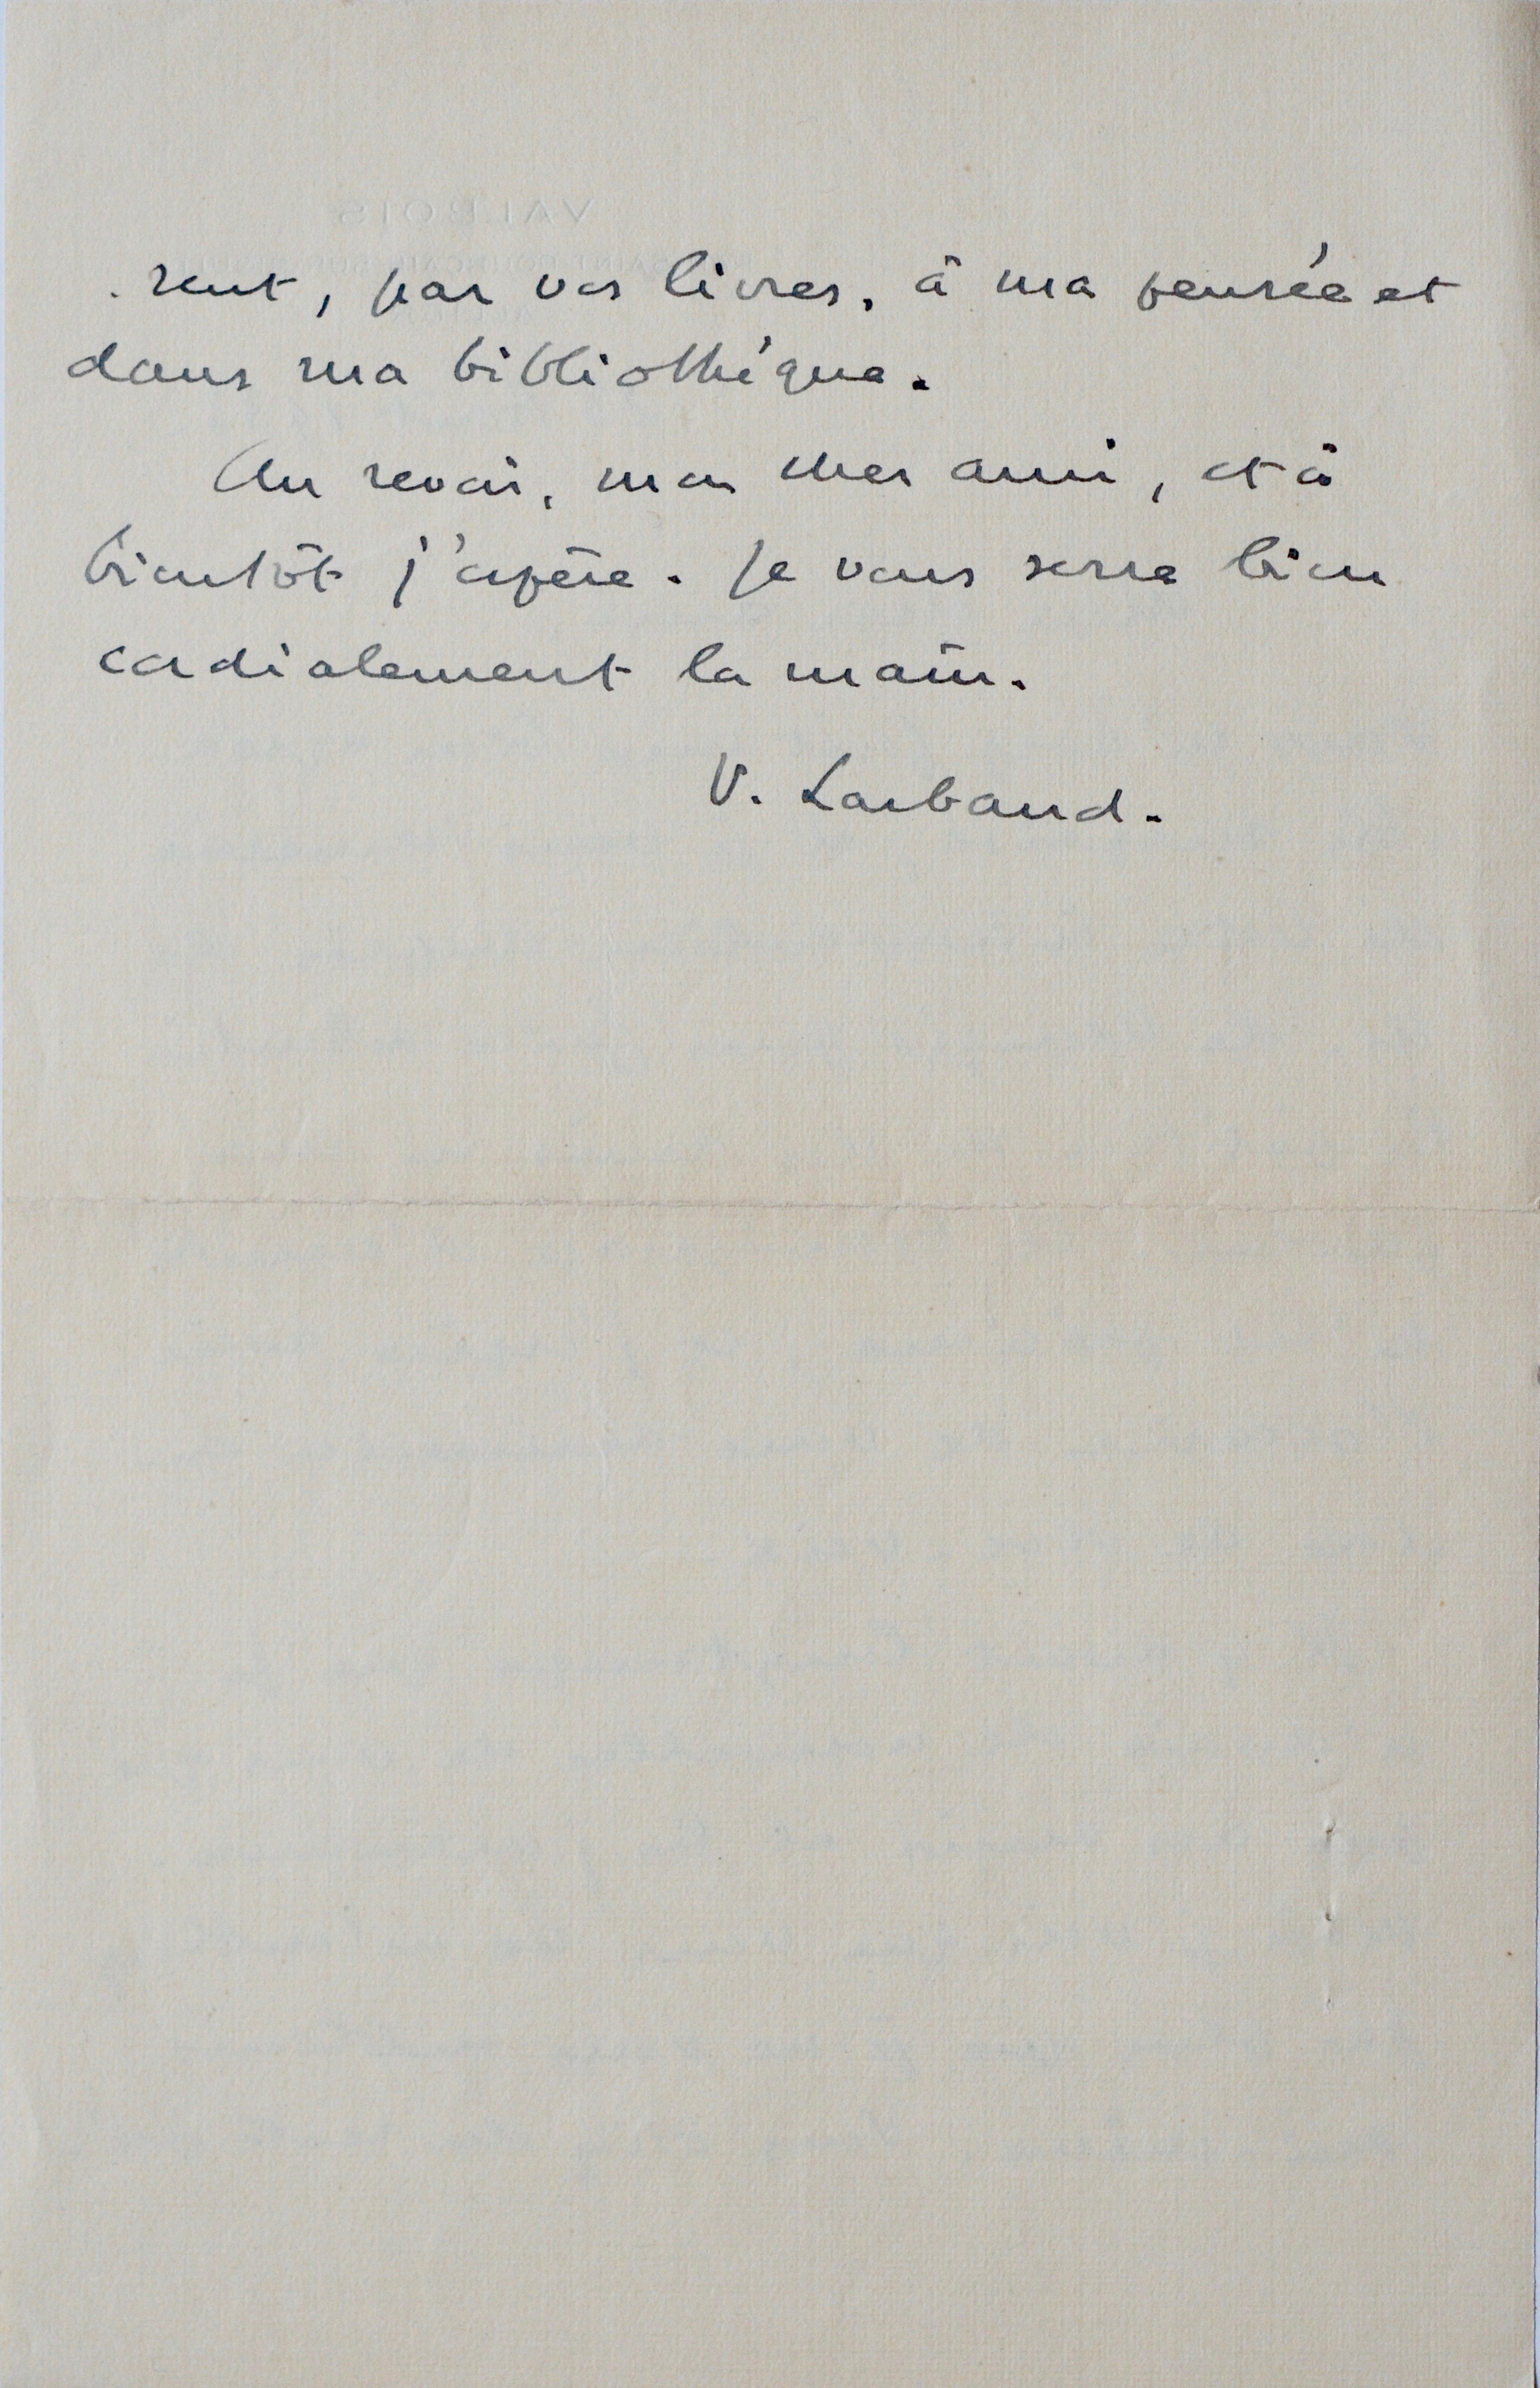 sent, par vos livres, à ma pensée et
dans ma bibliothèque.
Au revoir, mon cher ami, et à
bientôt j'espère. Je vous serre bien
cordialement la main.
V. Larbaud.